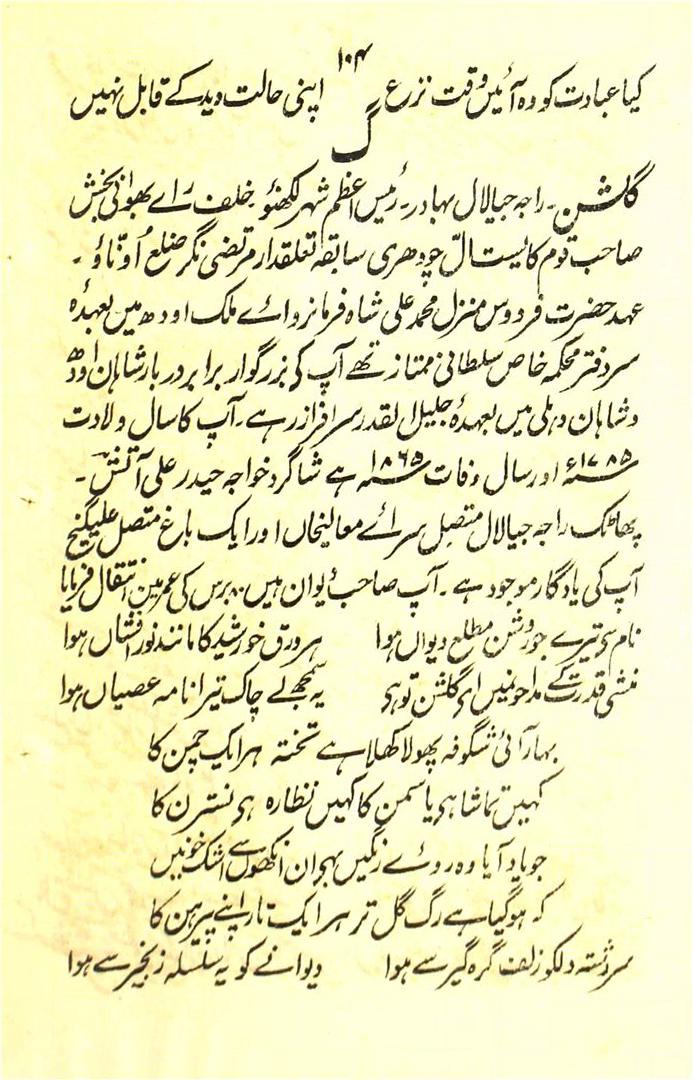 ۱۰۴
کیا عبادت کو وہ آئیں وقت نزع اپنی حالت دید کے قابل نہیں
گ
گلشن۔ راجہ جیالال بہادر۔ رئیس اعظم شہر لکھنؤ۔ خلف راے بھوانی بخش
صاحب قوم کایستھ چودھری سابقہ تعلقدار مرتضیٰ نگر ضلع اُونّاؤ۔
عہد حضرت فردوس منزل محمد علی شاہ فرمانروائے ملک اودھ میں بعہدۂ
سردفتر محکمہ خاص سلطانی ممتاز تھے آپ کی بزرگوار برابر دربار شاہان اودھ
و شاہان دہلی میں بعہدۂ جلیل القدر سرافراز رہے۔ آپ کا سال ولادت
۱۷۸۵ء اور سال وفات ۱۸۶۵ ہے شاگرد خواجہ حیدر علی آتش۔
پھاٹک راجہ جیالال متصل سرائے معالیخاں اور ایک باغ متصل علیگنج
آپ کی یادگار موجود ہے۔ آپ صاحب دیوان ہیں ۸۰ برس کی عمر میں انتقال فرمایا
نام سی تیرے جو روشن مطلع دیواں ہوا ہر ورق خورشید کا مانند نور افشاں ہوا
منشی قدرت کے مداحونمیں ای گلشن تو ہی یہ سمجھ لے چاک تیرا نامہ عصیاں ہوا
بہار آئی شگوفہ پھولا کھلا ہے تختہ ہر ایک چمن کا
کہیں تماشا ہی یاسمن کا کہیں نظارہ ہی نسترن کا
جو یاد آیا وہ روئے رنگیں بہر ان انکھوں سے اشک خونیں
کہ ہو گیا ہے رگ گل تر ہر ایک تار اپنے پیرہن کا
سررشتہ دلکو زلف گرہ گیر سے ہوا دیوانے کو یہ سلسلہ زنجیر سے ہوا